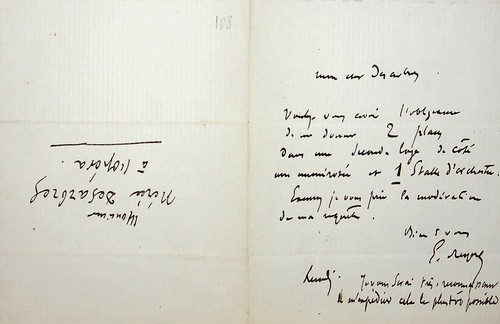 108
Monsieur
Nérée Desarbres
à l'Opéra.
mon cher Desarbres
Voulez vous avoir l'obligeance
de me donner 2 places
dans une seconde loge de côté
non numérotée et 1 Stalle d'orchestre.
je vous prie la modération
de ma requête.
Bien à vous
E. Reyer
Lundi. Je vous serai très reconnaissant
de m'expédier cela le plus tôt possible